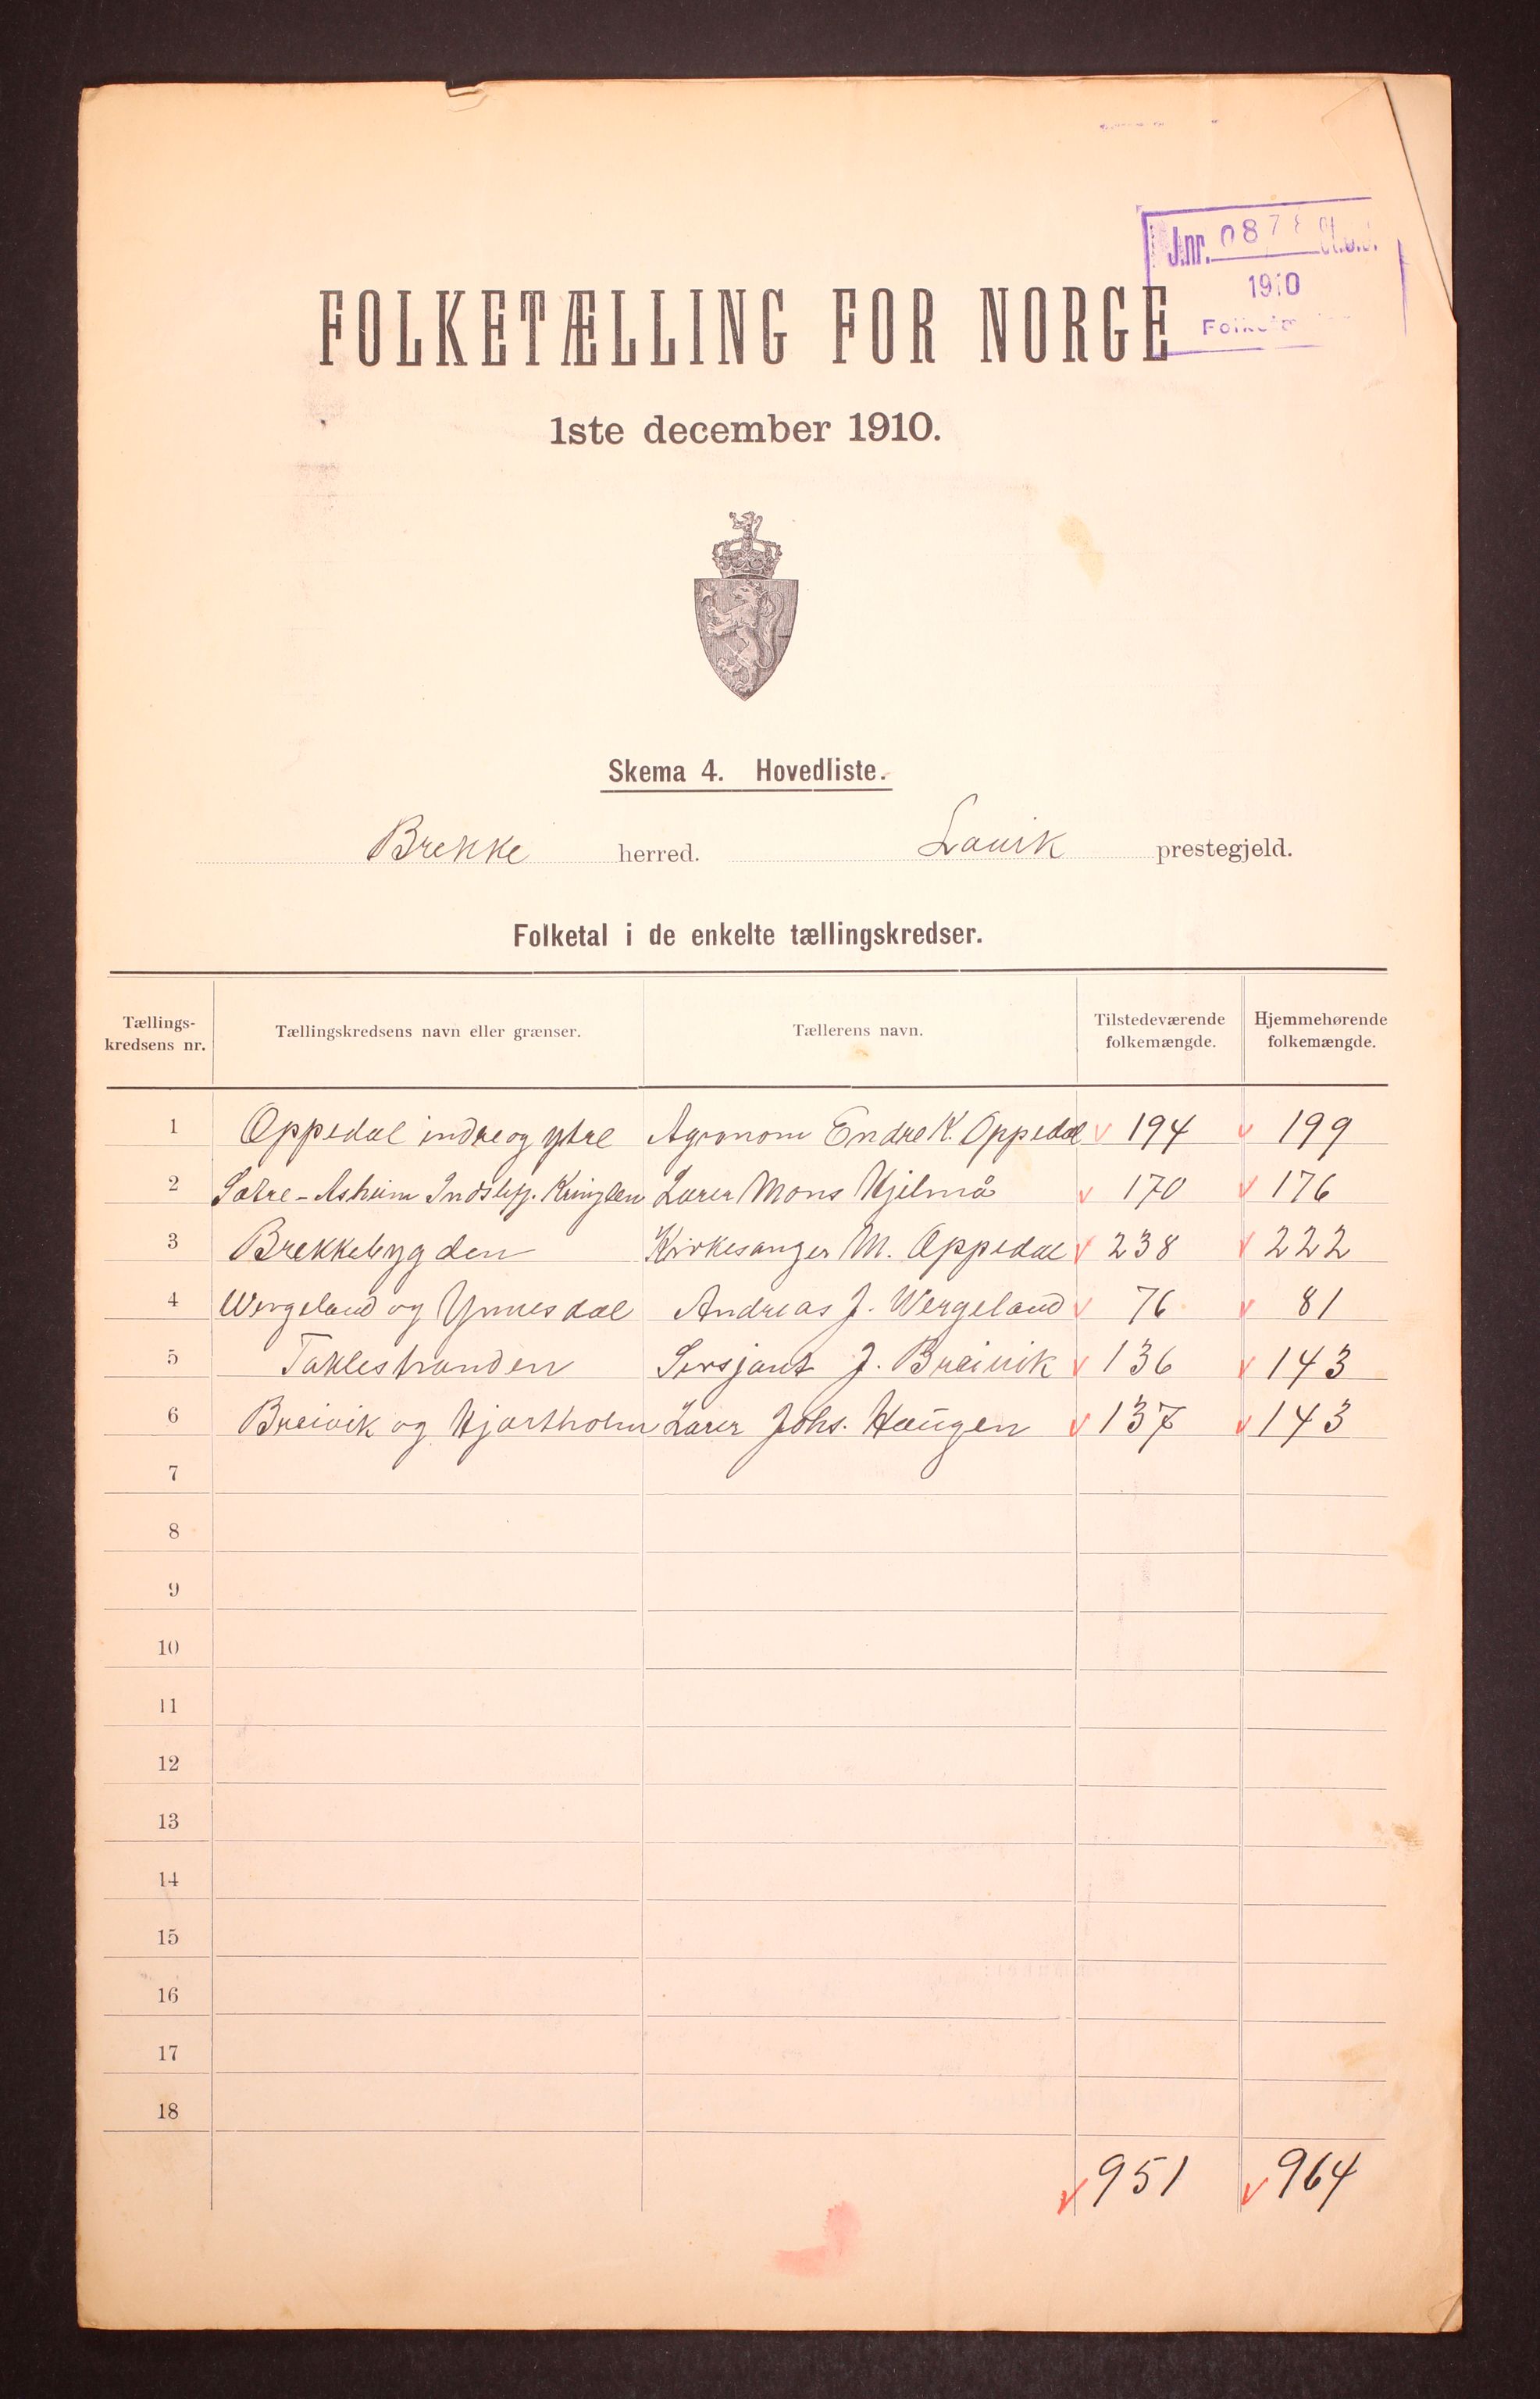 J.nr. 087
1910
FOLKETÆLLING FOR NORGE
1ste december 1910.
Skema 4. Hovedliste.
Brekke herred. Lavik prestegjeld.
Folketal i de enkelte tællingskredser.
Tællings-kredsens nr. Tællingskredsens navn eller grænser. Tællerens navn. Tilstedeværende folkemængde. Hjemmehørende folkemængde.
1 Oppedal indre og ytre Agronom Endre K. Oppedal v 194 v 199
2 Sætre-Asheim Kringlen Lærer Mons Hjelmå v 170 v 176
3 Brekkebygden Kirkesanger M. Oppedal v 238 v 222
4 Wergeland og Ynnesdal Andreas J. Wergeland v 76 v 81
5 Taklestranden Sersjant J. Breivik v 136 v 143
6 Breivik og Hjartholm Lærer Johs. Haugen v 137 v 143
7
8
9
10
11
12
13
14
15
16
17
18
v 951 v 964